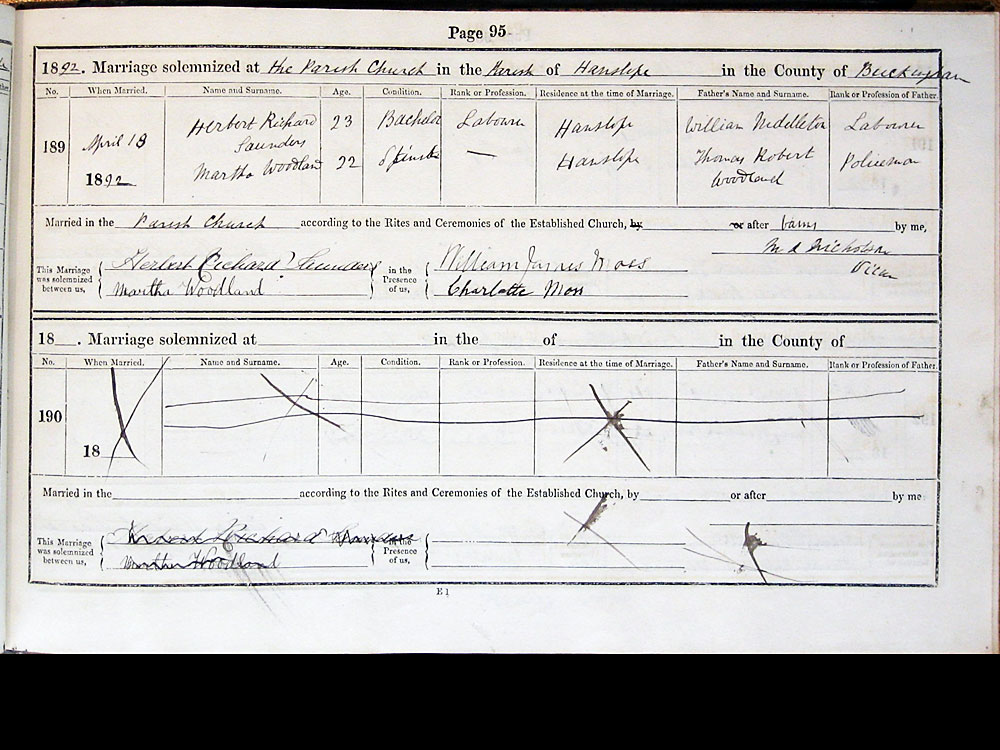 Page 95
1892. Marriage solemnized at the Parish Church in the Parish of Hanslope in the County of
No. When Married. Name and Surname. Age. Condition. Rank or Profession. Residence at the time of Marriage. Father's Name and Surname. Rank or Profession of Father.
189 April 18 1892
Herbert Richard Saunders 23 Bachelor Labourer Hanslope William Middleton Labourer
Martha Woodland 22 Spinster — Hanslope Thomas Robert Woodland Policeman
Married in the Parish Church according to the Rites and Ceremonies of the Established Church, by or after banns by me,
Nicholson
Vicar
This Marriage was solemnized between us,
Herbert Richard Saunders
Martha Woodland
in the Presence of us,
William James Moss
Charlotte Moss
18 . Marriage solemnized at in the of in the County of
No. When Married. Name and Surname. Age. Condition. Rank or Profession. Residence at the time of Marriage. Father's Name and Surname. Rank or Profession of Father.
190
18
Married in the according to the Rites and Ceremonies of the Established Church, by or after by me
This Marriage was solemnized between us,
Herbert Richard Saunders
Martha Woodland
in the Presence of us,
E 1